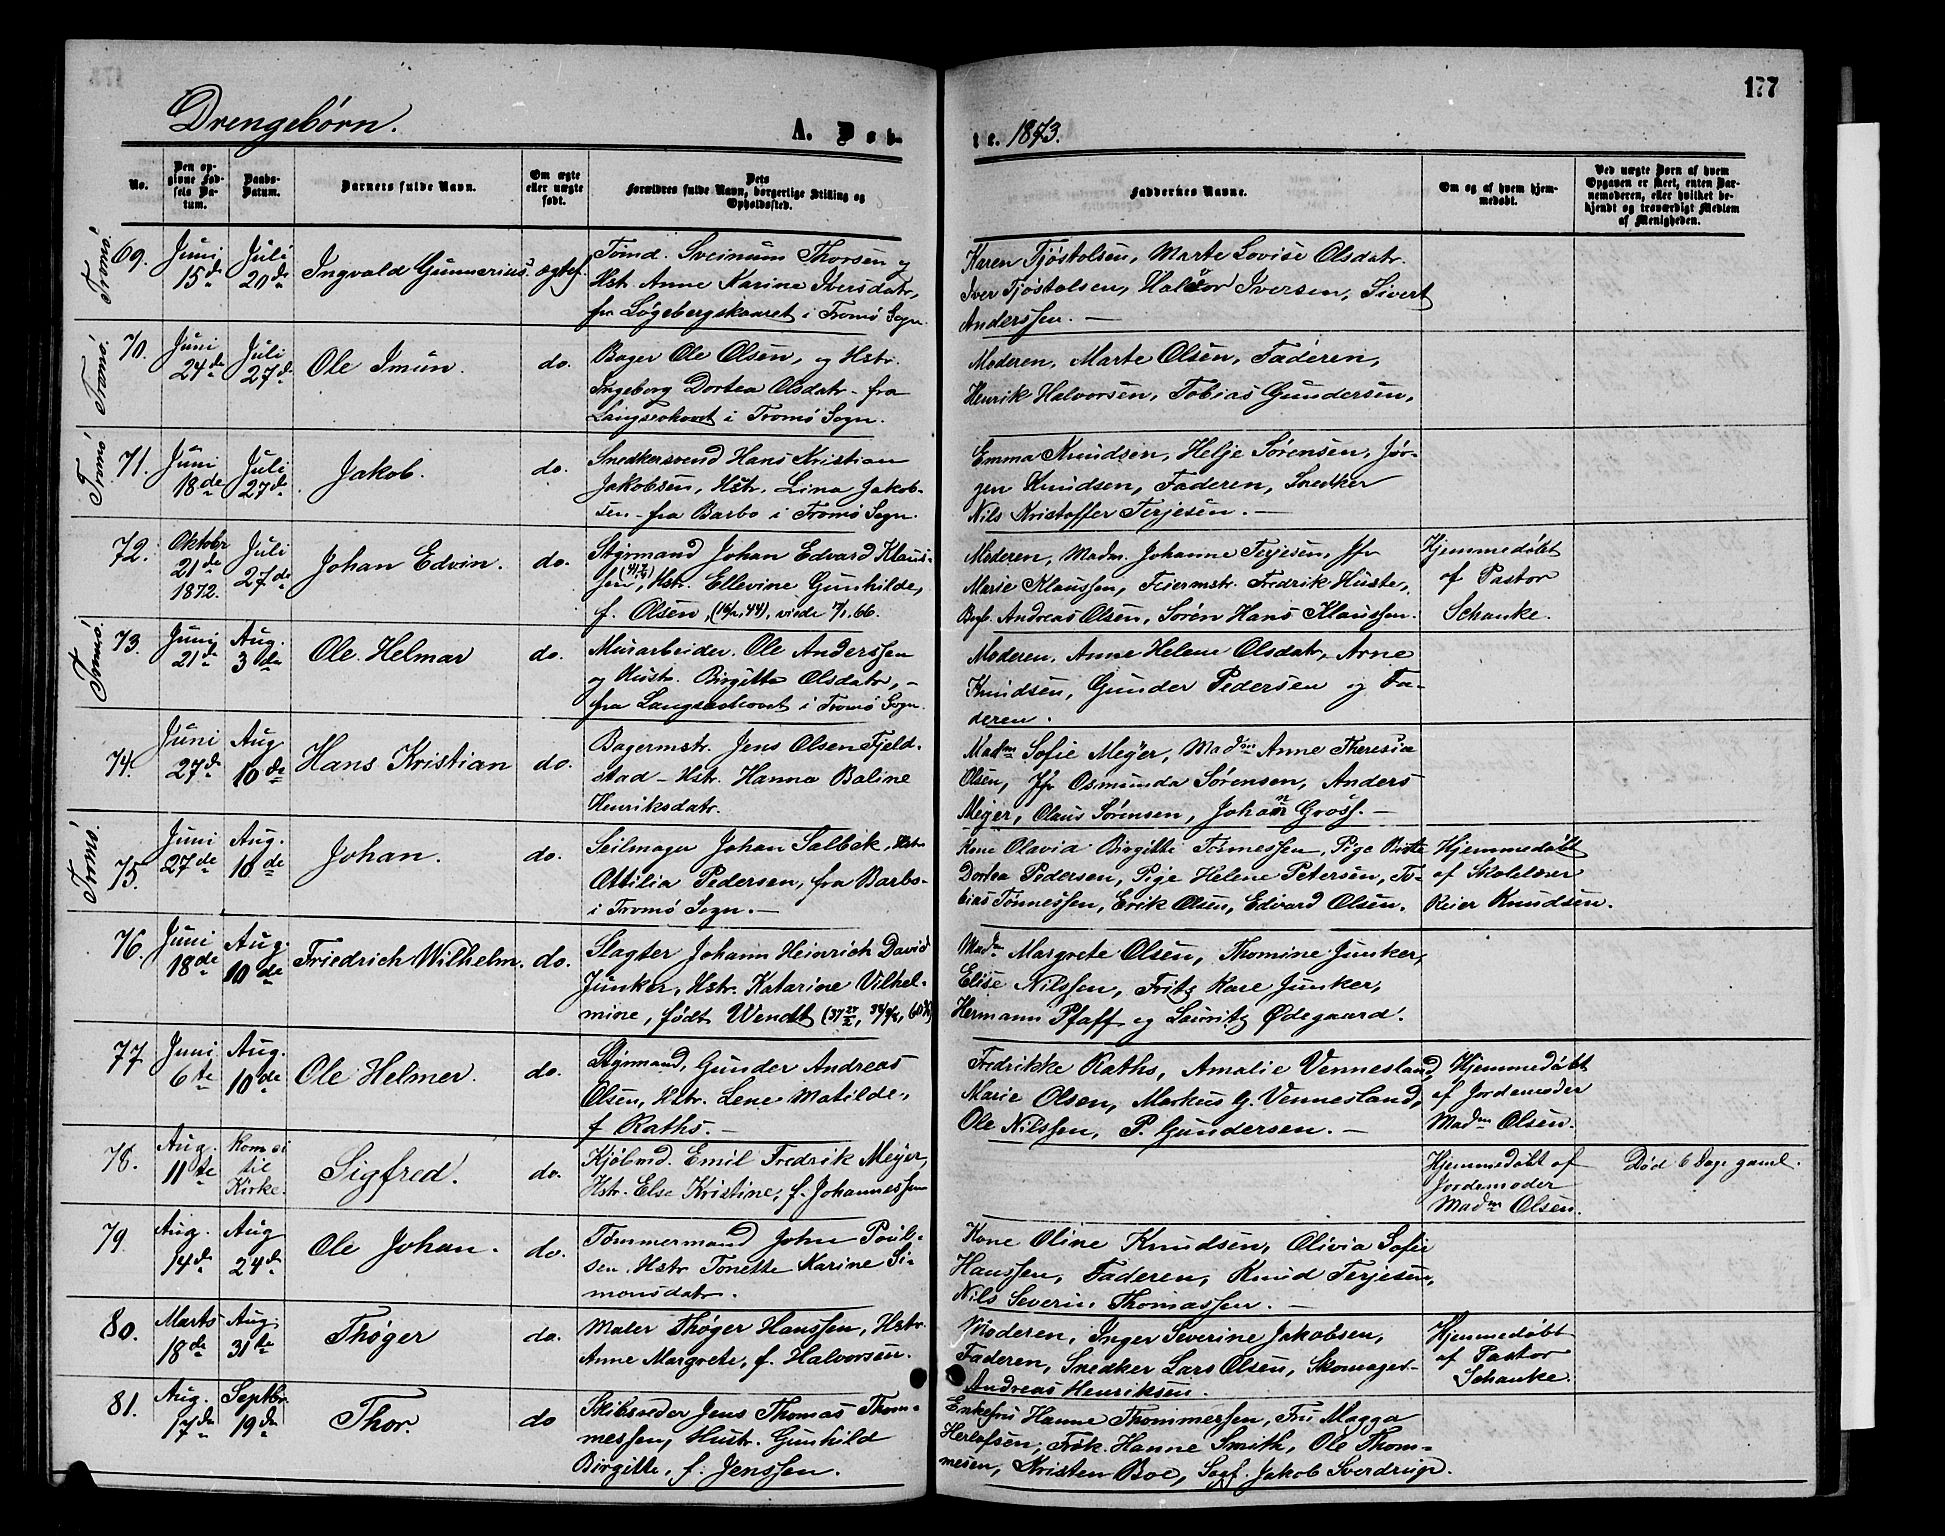 Drengebørn.
A. Døb-
te. 1873.
177
No.
Den op-
givne Fød-
sels Da-
tum.
Daabs-
Datum.
Barnets fulde Navn.
Om ægte
eller uægte
født.
Dets
Forældres fulde Navn, borgerlige Stilling og
Opholdssted.
Faddernes Navne.
Om og af hvem hjem-
medøbt.
Ved uægte Børn af hvem
Opgaven er skeet, enten Bar-
nemoderen, eller hvilket be-
kjendt og troværdigt Medlem
af Menigheden.
Tromø.
69.
Juni
15de
Juli
20de
Ingvald Gunnerius.
ægtef.
Tømd. Sveinum Thorsen og
Hst. Anne Karine Iversdatr,
fra Løgebergskaaret i Tromø Sogn.
Karen Tjøstolsen, Marte Lovise Olsdatr.
Iver Tjøstolsen, Halvor Iversen, Sivert
Anderssen. —
Tromø.
70.
Juni
24de
Juli
27de
Ole Imun.
do.
Bager Ole Olsen, og Hstr.
Ingeborg Dortea Olsdatr - fra
Langsæhovet i Tromø Sogn.
Moderen, Marte Olsen, Faderen,
Henrik Halvorsen, Tobias Gundersen,
Tromø
71.
Juni
18de
Juli
27de
Jakob.
do.
Snedkersvend Hans Kristian
Jakobsen, Hstr. Lina Jakob-
sen - fra Barbo i Tromø Sogn.
Emma Knudsen, Helje Sørensen, Jør-
gen Knudsen, Faderen, Snedker
Nils Kristoffer Terjesen. —
72.
Oktobr
21de
1872.
Juli
27de
Johan Edvin.
do.
Styrmand Johan Edvard Klaus-
sen, Hstr. Ellevine Gunhilde,
f. Olsen, viede 7/1.66.
Moderen, Madm. Johanne Terjesen, Jfr
Marie Klaussen, Feiermstr. Fredrik Huste,
Andreas Olsen, Søren Hans Klaussen.
Hjemmedøbt
af Pastor
Schanke.
Tromø.
73.
Juni
21de
Aug.
3die
Ole Helmar
do.
Murarbeider. Ole Anderssen
og Hustr. Birgitte Olsdatr, -
fra Langsæhovet i Tromø Sogn.
Moderen, Anne Helene Olsdatr, Arne
Knudsen, Gunder Pedersen og Fa-
deren.
74.
Juni
27de
Aug
10de
Hans Kristian
do.
Bagermstr. Jens Olsen Fjeld-
stad - Hstr. Hanna Baline
Henriksdatr.
Madm Sofie Meyer, Madm Anne Theresia
Olsen, Jfr Osmunda Sørensen, Anders
Meyer, Olaus Sørensen, Johan Gross. —
Tromø.
75.
Juni
27de
Aug.
10de
Johan.
do.
Seilmager Johan Salbok, Hstr
Attilia Pedersen, fra Barbo-
i Tromø Sogn. —
Kone Olavia Birgitte Tønnessen, Pige Birte
Dortea Pedersen, Pige Helene Petersen, To-
bias Tønnessen, Erik Olsen, Edvard Olsen.
Hjemmedøbt
af Skolelærer
Reier Knudsen.
76.
Juni
18de
Aug.
10de
Friedrich Wilhelm.
do.
Slagter Johann Heinrich David
Junker, Hstr. Katarine Vilhel-
mine, født Wendt
Madm Margrete Olsen, Thomine Junker,
Elise Nilssen, Fritz Kare Junker,
Hermann Pfaff og Lauritz Ødegaard.
77
Juni
6te
Aug.
10de
Ole Helmer.
do.
Styrmand, Gunder Andreas
Olsen, Hstr. Lene Matilde,
f Raths. —
Fredrikke Raths, Amalie Vennesland,
Marie Olsen, Markus G. Vennesland,
Ole Nilssen, P. Gundersen. —
Hjemmedøbt
af Jordemoder
Madm Olsen.
78.
Aug.
11te
Kom ei
til
Kirke.
Sigfred.
do.
Kjøbmd. Emil Fredrik Meyer,
Hstr. Else Kristine, f. Johannessen
Hjemmedøbt af
Jordemoder
Madm Olsen.
Død 6 Dage gaml.
79.
Aug.
14de
Aug
24de
Ole Johan.
do.
Tømmermand John Poul-
sen. Hstr Tonette Karine Si-
monsdatr.
Kone Oline Knudsen, Olivia Sofie
Hanssen, Faderen, Knud Terjesen,
Nils Severin Thomassen. —
80.
Marts
18de
Aug
31te
Thøger
do.
Maler Thøger Hanssen, Hstr.
Anne Margrete, f. Halvorsen.
Moderen, Inger Severine Jakobsen,
Faderen, Snedker Lars Olsen, Skomager-
Andreas Henriksen.
Hjemmedøbt
af Pastor
Schanke.
81.
Aug.
17de
Septbr.
19de
Thor.
do
Skibsreder Jens Thomas Thom-
messen, Hustr. Gunhild
Birgitte, f. Jenssen.
Enkefru Hanne Thommessen, Fru Magga
Herlofsen, Frøk. Hanne Smith, Ole Thom-
mesen, Kristen Boe, Sagf. Jakob Sverdrup.